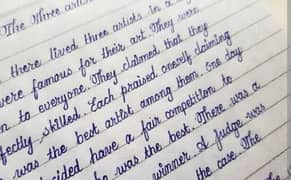 The Three arti
there lived three artists in a
were famous for their art. They were
n to everyone. They claimed that they
fectly skilled. Each praised oneself claiming
was the best artist among them. One day
cided have a fair competition to
he was the best. There was a
winner. A judge was
the case. The